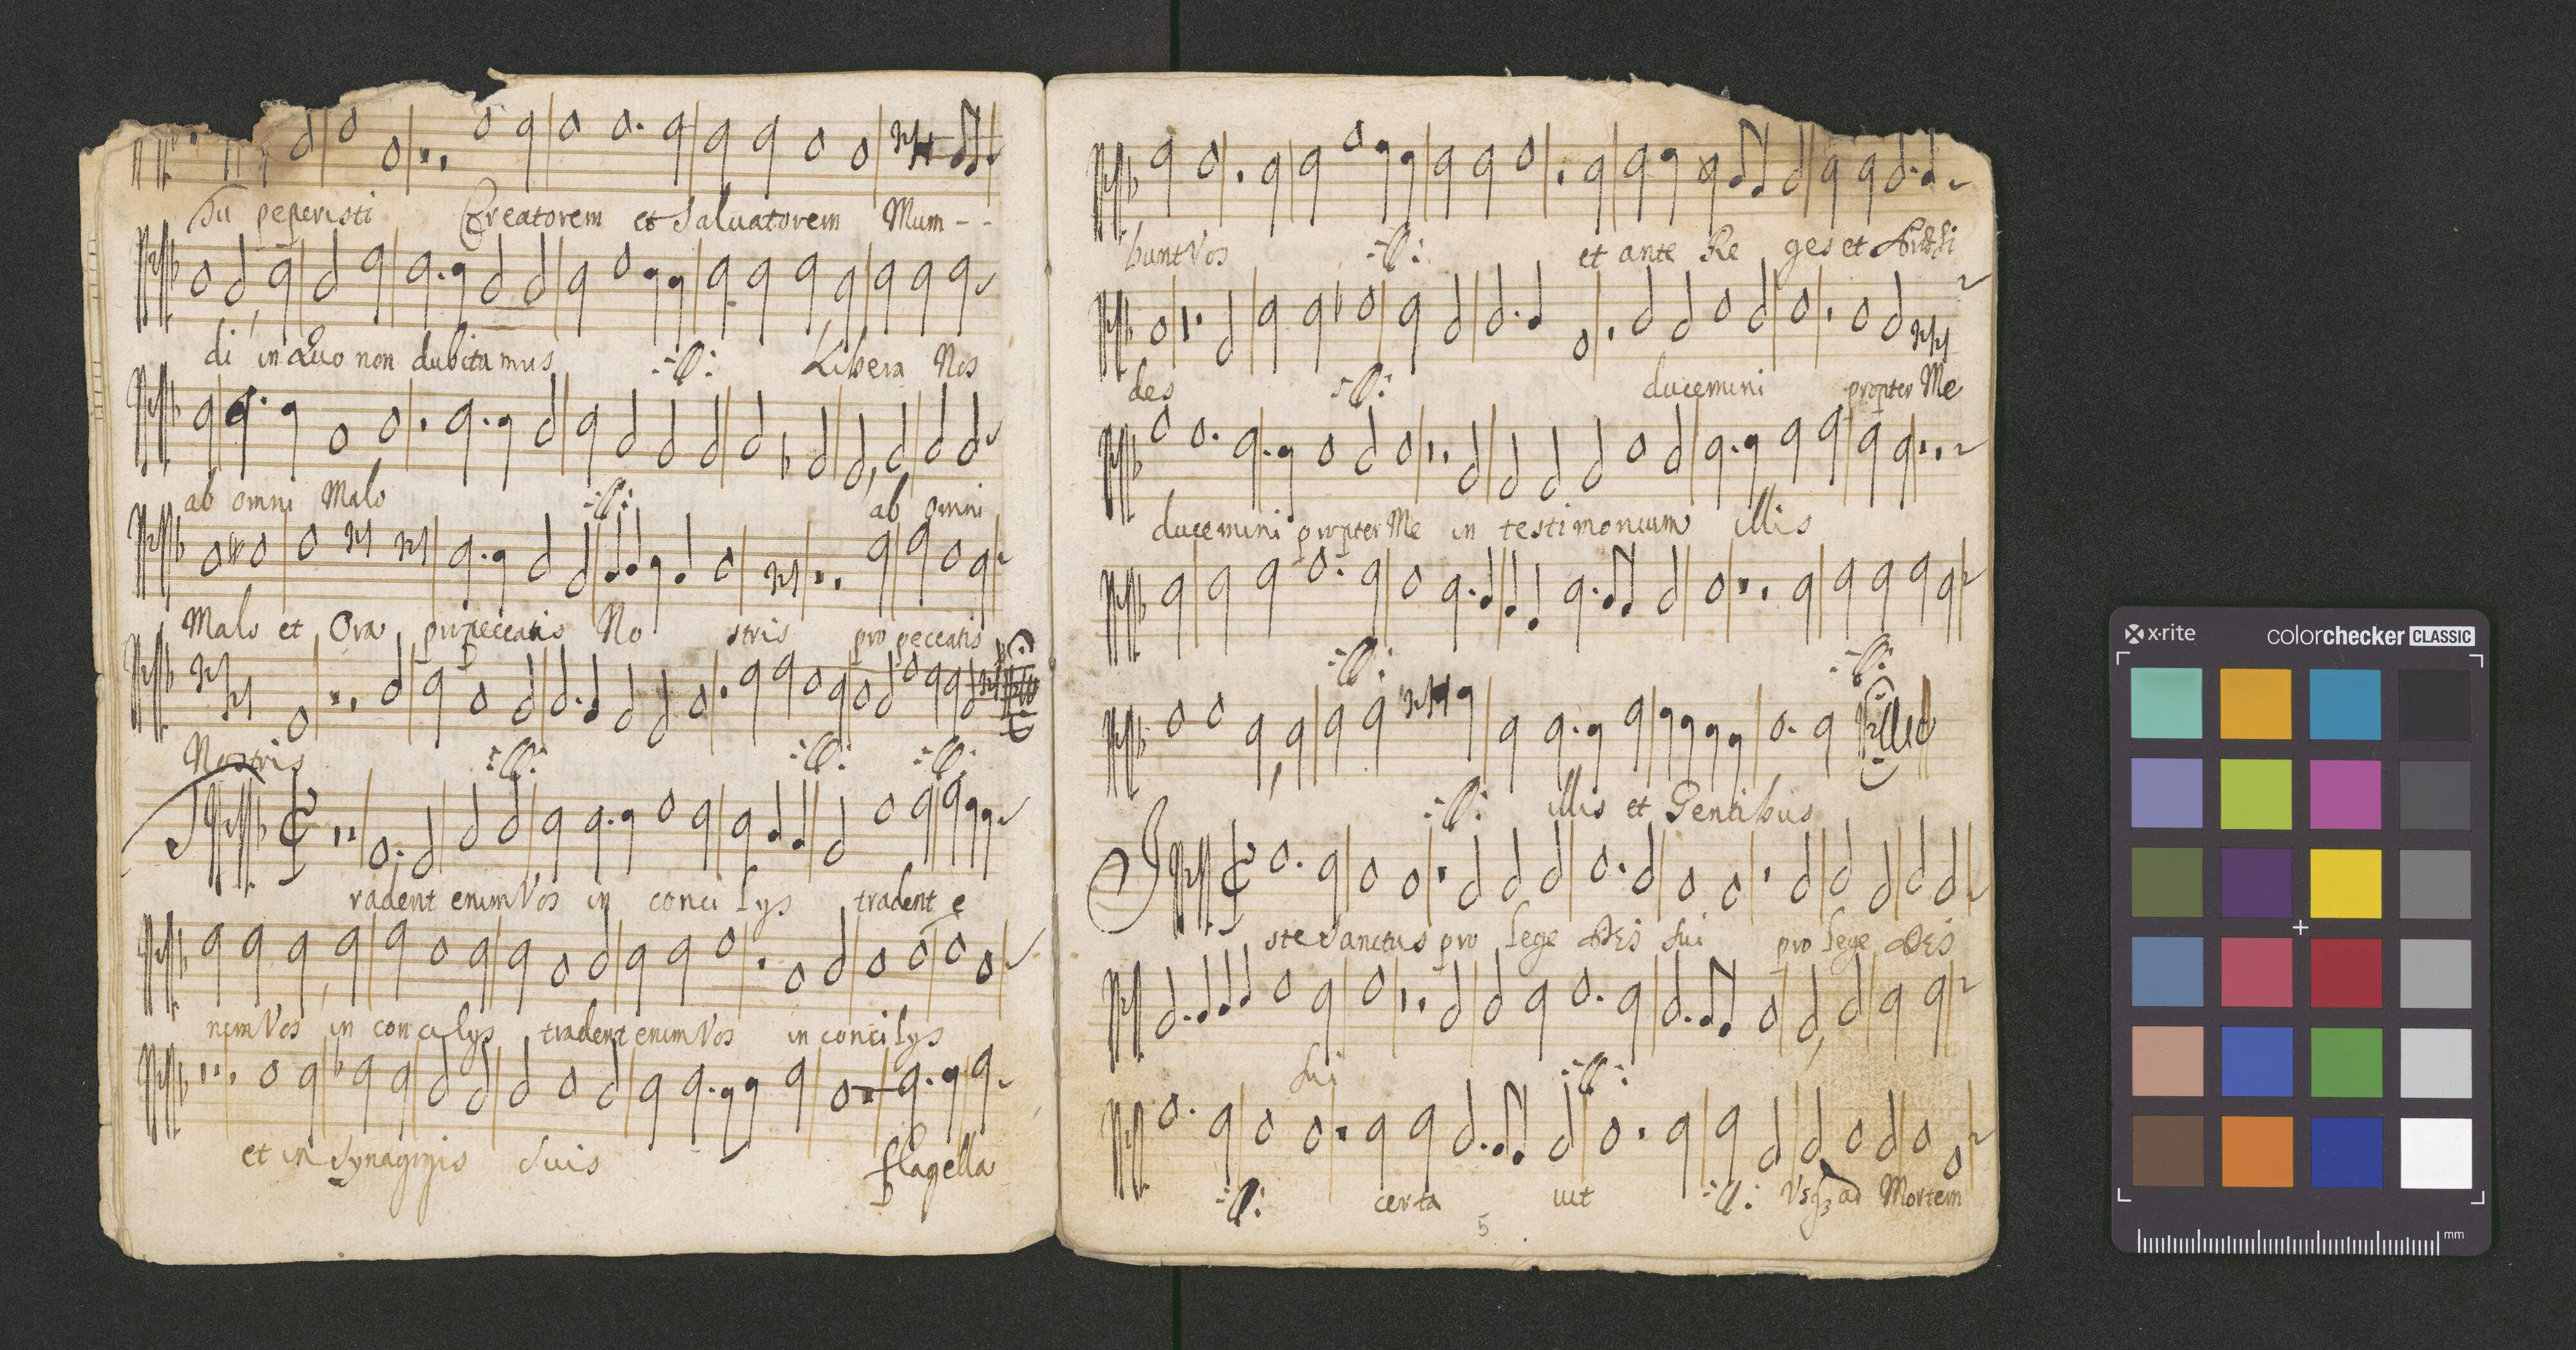 Tu peperisti Creatorem et Salvatorem Mum - -
di in Quo non dubitamus ://: Libera Nos
ab omni Malo ://: ab omni
Malo et Ora pro peccatis No stris pro peccatis
Nostris ://: ://: ://:
radent enim Vos in conci lys tradent e
nim Vos in concilys tradent enim Vos in concilys
et in Synagogis Suis flagella
bunt Vos ://: et ante Re ges et
des ://: ducemini propter Me
ducemini propter Me in testimonium illis
://: ://:
://: illis et Gentibus
Iste Sanctus pro lege DEi Sui pro lege DEi
Sui ://:
://: certa vit ://: Vsq3 ad Mortem
5
x·rite colorchecker CLASSIC
mm